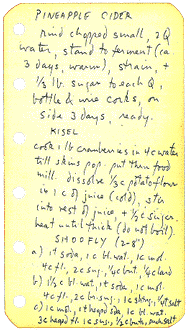 PINEAPPLE CIDER
rind chopped small, 2 Q
water, stand to ferment (ca
3 days, warm), strain, +
1/3 lb. sugar to each Q,
bottle & wire corks, on
side 3 days, ready.
KISEL
cook 1 lb cranberries in 4c water
till skins pop. put thru food
mill. dissolve 1/3 c potato flour
in 1 c of juice (cold), stir
into rest of juice + 1/2 c sugar.
heat until thick (do not boil).
SHOOFLY (2-8")
a) 1t soda, 1c bl. wat., 1c mol.
4c fl., 2c sug., 1/4c but., 1/4c lard
b) 1 1/2 c bl wat, 1t soda, 1c mol.
4c fl., 2c br. sug., 1c short., 1/4t salt
c) 1c mol., 1t heaped soda, 1c bl. wat.
3c heaped fl. 1c sug., 1/2c but., salt